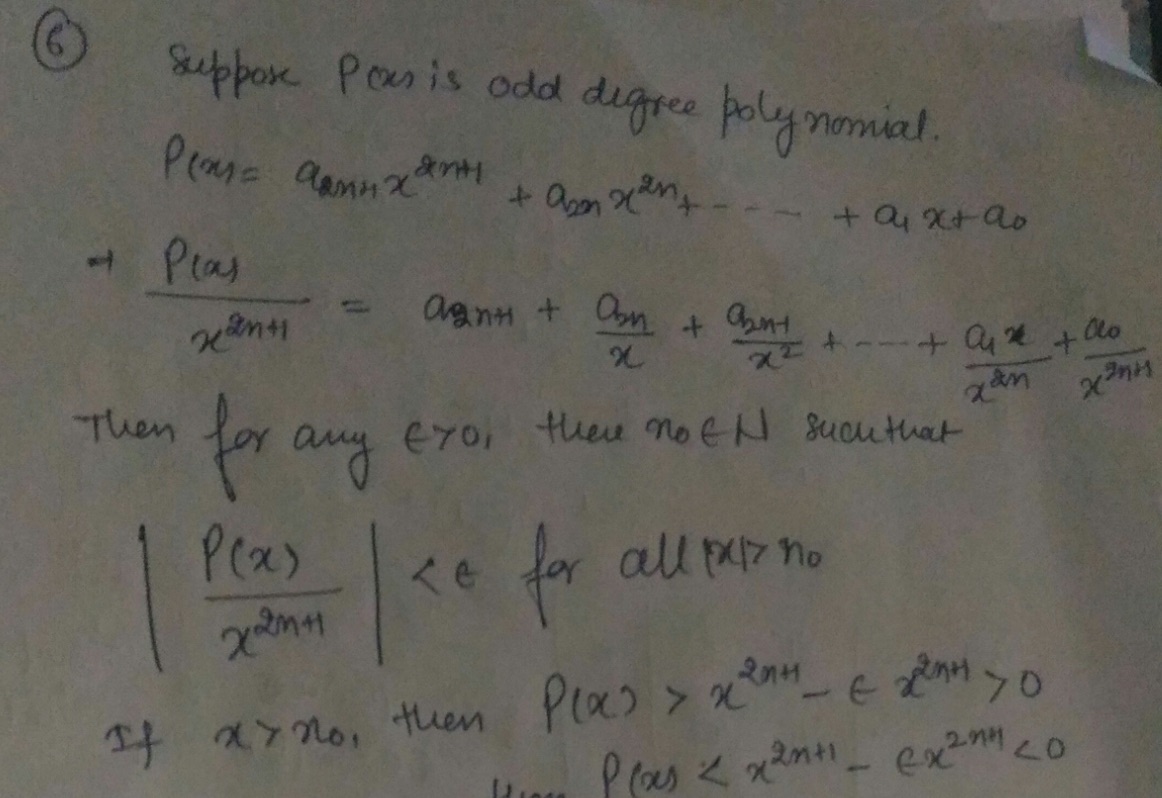 ⑥ Suppose P(x) is odd degree polynomial.
P(x) = a₂ₙ₊₁ x²ⁿ⁺¹ + a₂ₙ x²ⁿ + - - - - + a₁ x + a₀
⇒ P(x) / x²ⁿ⁺¹ = a₂ₙ₊₁ + a₂ₙ / x + a₂ₙ₋₁ / x² + - - - + a₁ x / x²ⁿ + a₀ / x²ⁿ⁺¹
Then for any ϵ>0, there n₀ ∈ N such that
| P(x) / x²ⁿ⁺¹ | < ϵ for all |x|> n₀
If x > n₀, then P(x) > x²ⁿ⁺¹ - ϵ x²ⁿ⁺¹ > 0
P(x) < x²ⁿ⁺¹ - ϵx²ⁿ⁺¹ < 0